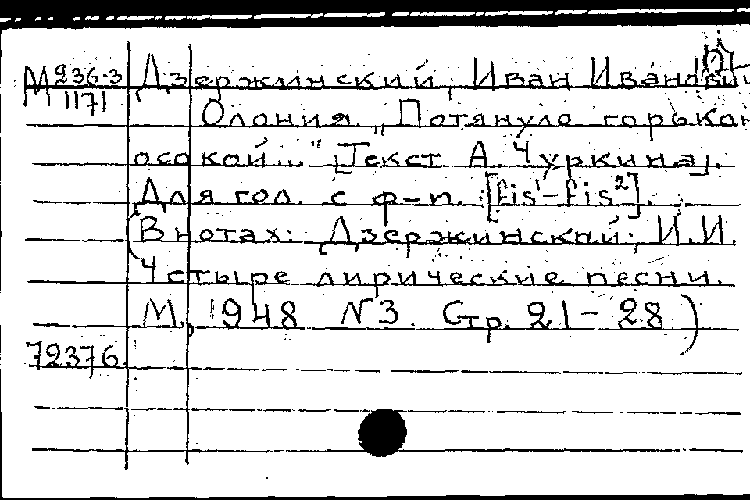 М 236-3 Дзержинский, Иван Иванович
1171
Олония. "Потянуло горькой
осокой..." [Текст А. Чуркина].
Для гол. с ф-п. [fis¹-fis²].
(В нотах: Дзержинский, И.И.
Четыре лирические песни.
М., 1948 N3. Стр. 21-28)
72376.